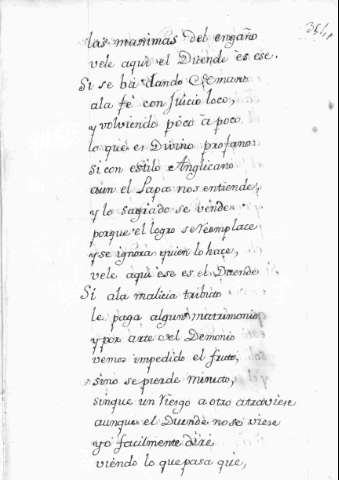 las maximas del engaño
vele aqui el Duende es ese.
Si se ba dando de mano
ala fe con Juicio loco,
y volviendo poco à poco
lo que es Divino profano:
si con estilo Anglicano
aun el Papa nos entiende,
y lo sagrado se vende
porque el logro se reemplace
y se ignora quien lo hace,
vele aqui ese es el Duende
Si ala malicia tributo
le paga algun matrimonio
y por arte del Demonio
vemos impedido el fruto,
sino se pierde minuto,
sinque un riesgo a otro atraviese
aunque el Duende no se viese
yo facilmente diré,
viendo lo que pasa que,